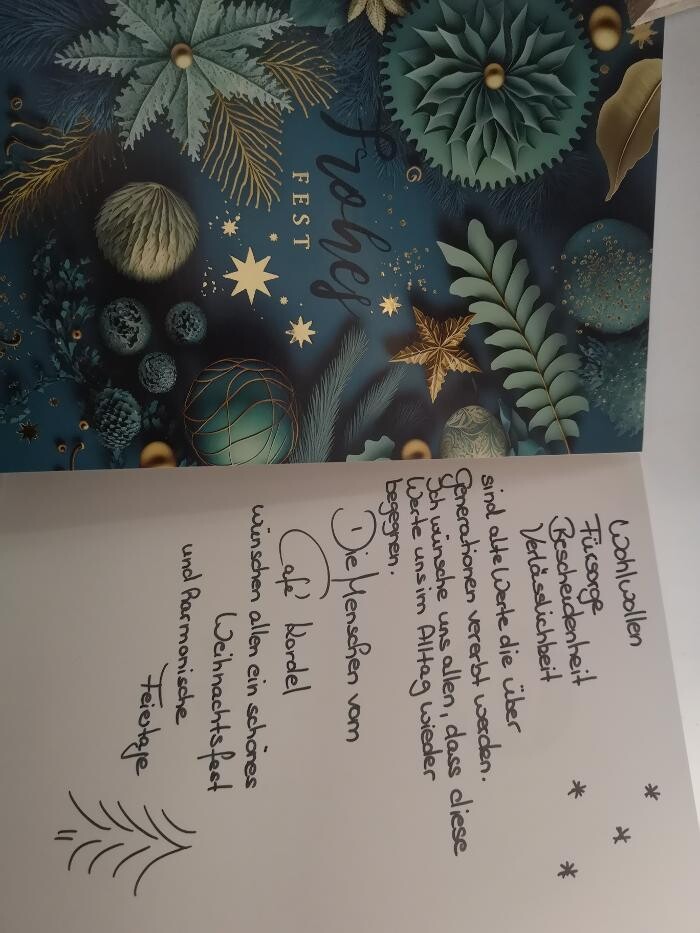 frohes
FEST
Wohlwollen
Fürsorge
Bescheidenheit
Verlässlichkeit
sind alte Werte die über
Generationen vererbt werden.
Ich wünsche uns allen, dass diese
Werte uns im Alltag wieder
begegnen.
Die Menschen vom
Café Kordel
wünschen allen ein schönes
Weihnachtsfest
und harmonische
Feiertage